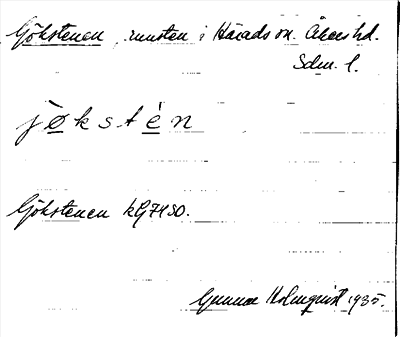 Gökstenen, runsten i Härads sn. Åkers hd.
Sdm. l.
jøkstén
Gökstenen kG7450.
Gunnar Holmquist 1935.